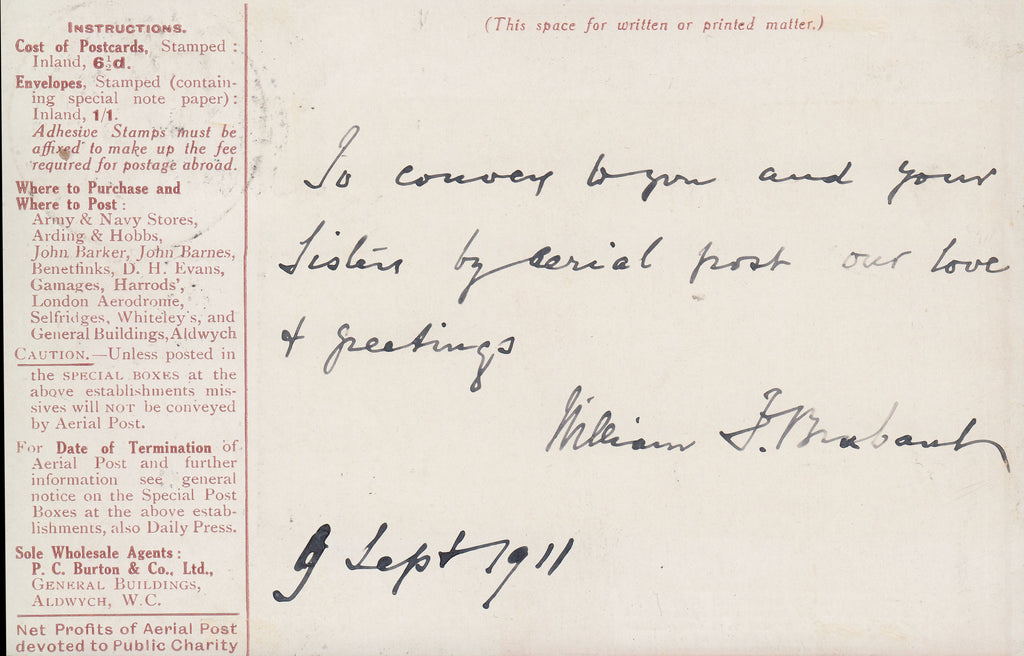 INSTRUCTIONS.
Cost of Postcards, Stamped :
Inland, 6½d.
Envelopes, Stamped (contain-
ing special note paper) :
Inland, 1/1.
Adhesive Stamps must be
affixed to make up the fee
required for postage abroad.
Where to Purchase and
Where to Post :
Army & Navy Stores,
Arding & Hobbs,
John Barker, John Barnes,
Benetfinks, D. H. Evans,
Gamages, Harrods',
London Aerodrome,
Selfridges, Whiteley's, and
General Buildings, Aldwych
CAUTION.—Unless posted in
the SPECIAL BOXES at the
above establishments mis-
sives will NOT be conveyed
by Aerial Post.
For Date of Termination of
Aerial Post and further
information see general
notice on the Special Post
Boxes at the above estab-
lishments, also Daily Press.
Sole Wholesale Agents :
P. C. Burton & Co., Ltd.,
GENERAL BUILDINGS,
ALDWYCH, W.C.
Net Profits of Aerial Post
devoted to Public Charity
(This space for written or printed matter.)
To convey to you and your
Sisters by aerial post our love
& greetings
William F. Brabant
9 Sept 1911